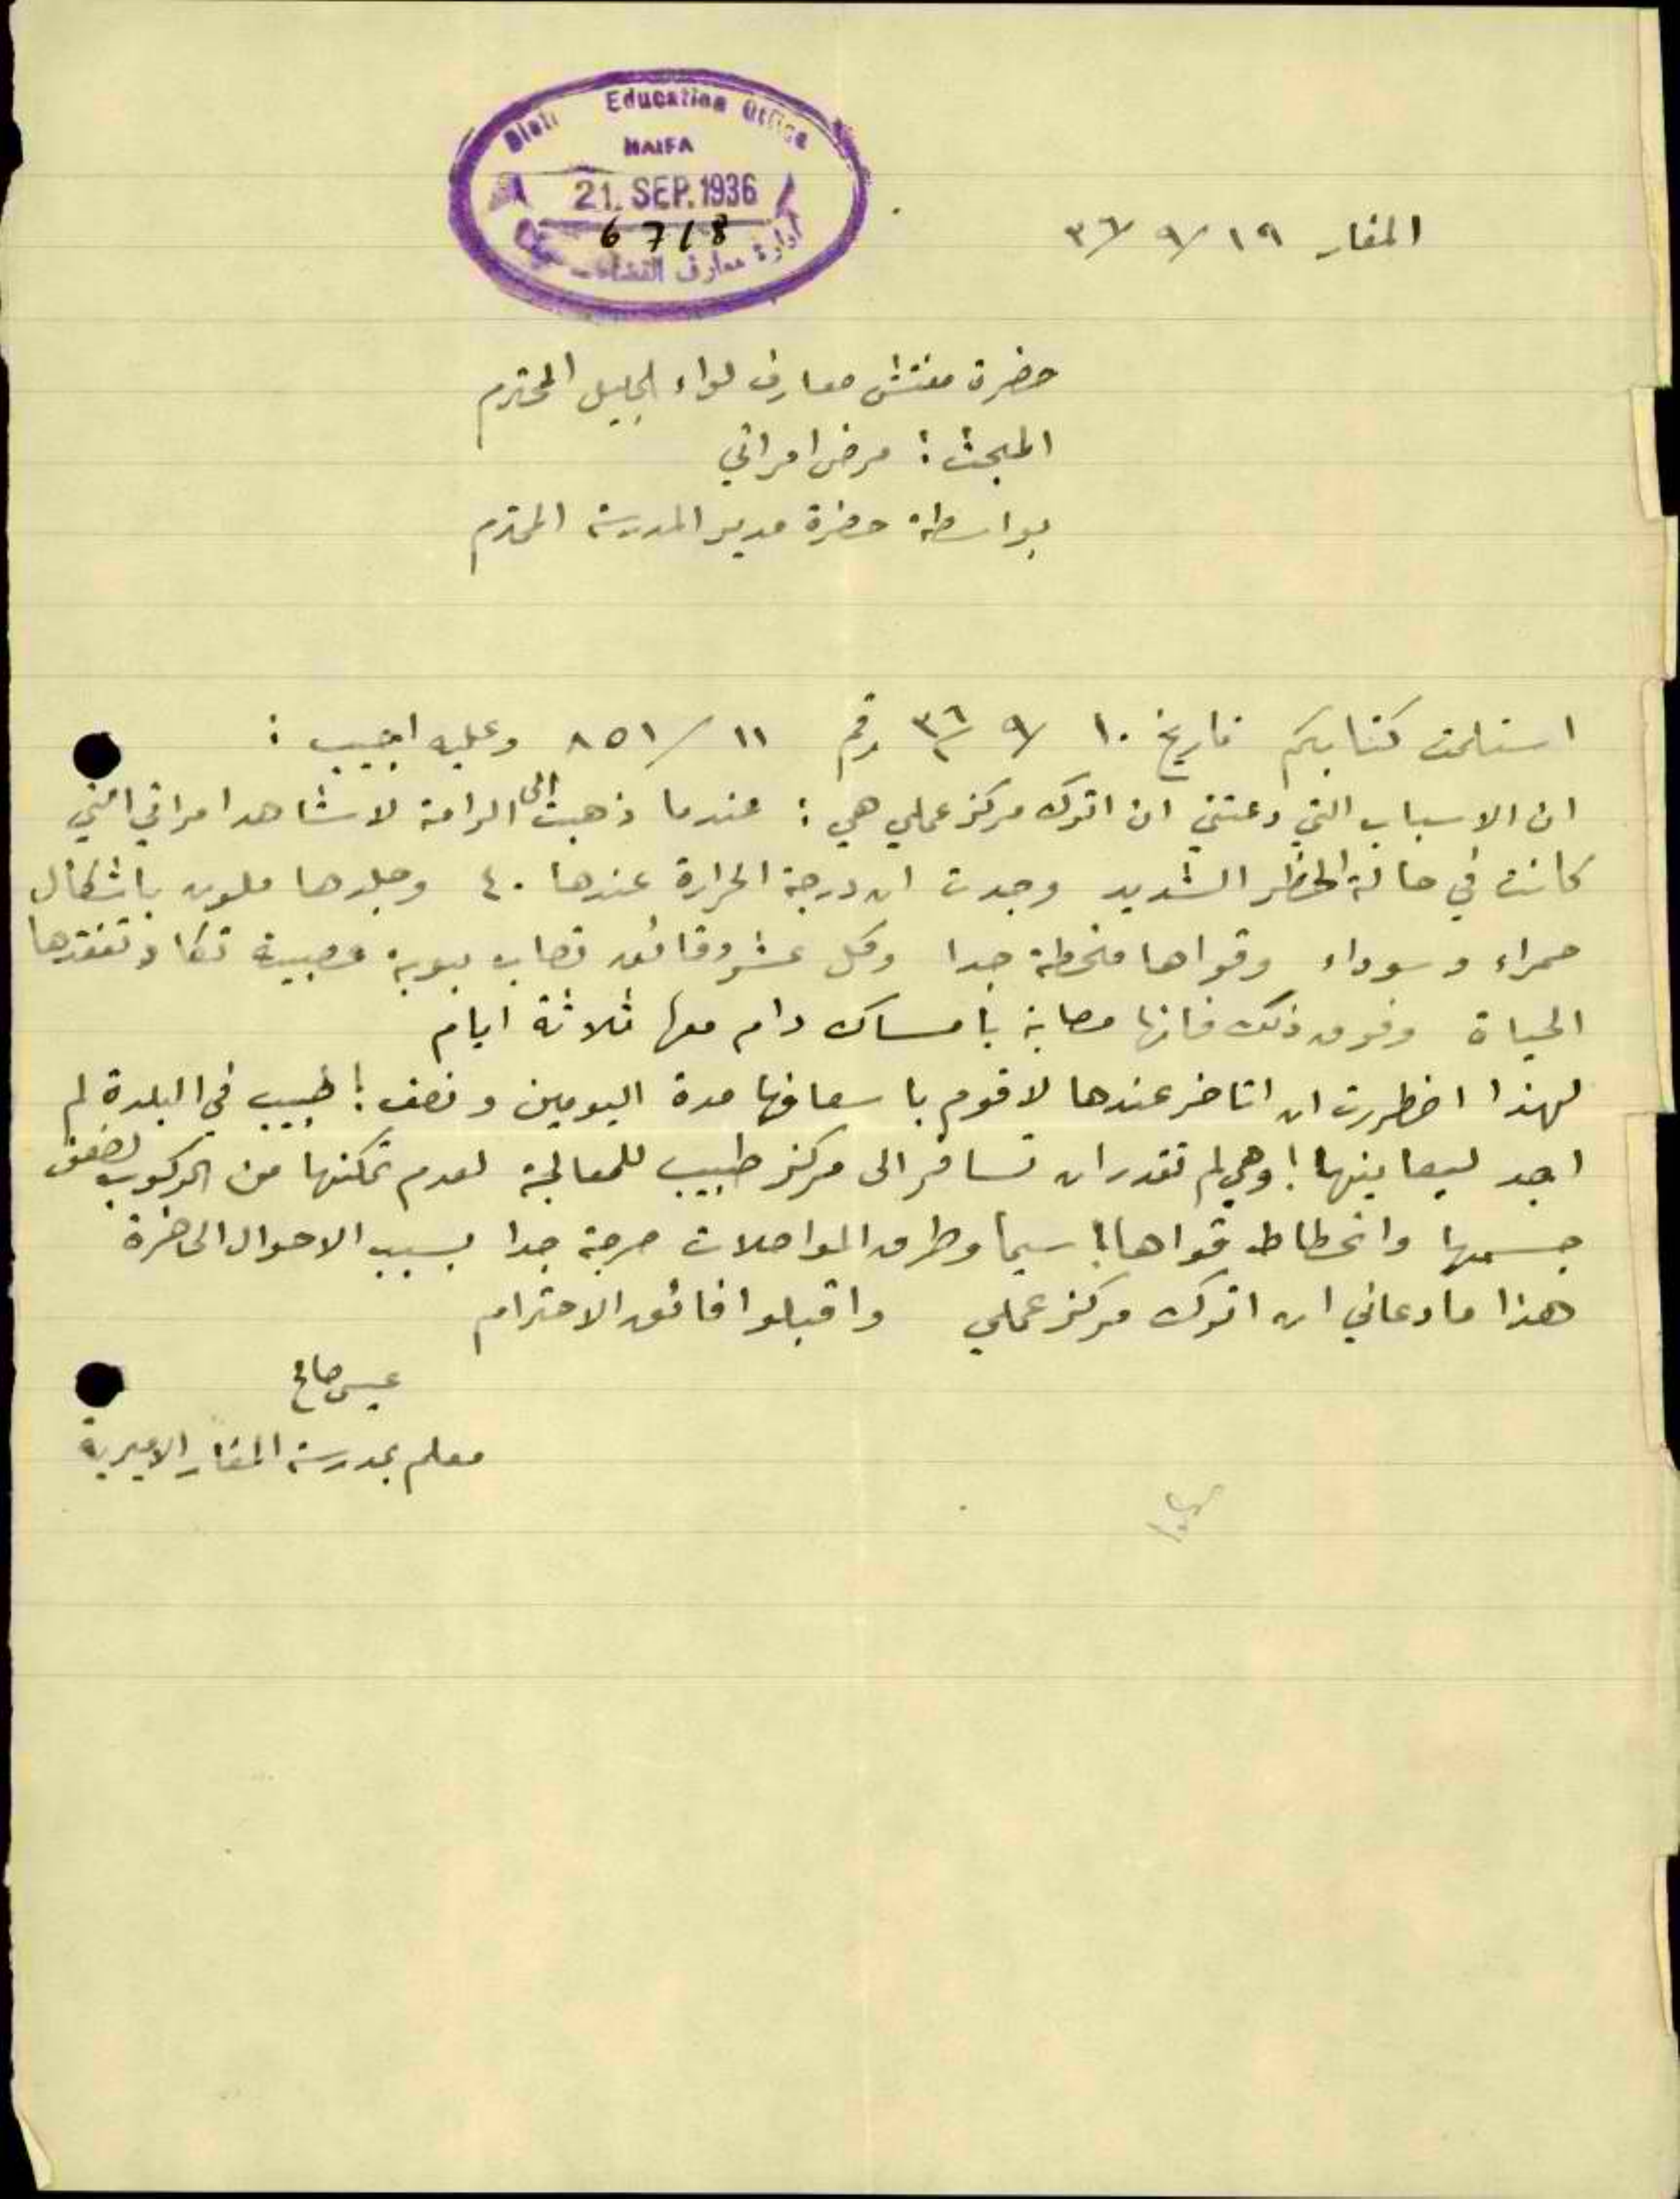 Dist. Education Office
HAIFA
21. SEP. 1936
6718
ادارة معارف القضاء
المغار ١٩ / ٩ / ٣٦
حضرة مفتش معارف لواء الجليل المحترم
المبحث : مرض امراتي
بواسطة حضرة مدير المدرسة المحترم
استلمت كتابكم تاريخ ١٠ / ٩ / ٣٦ رقم ١١ / ٨٥١ وعليه اجيب :
ان الاسباب التي دعتني ان اترك مركز عملي هي : عندما ذهبت الى الرامة لاشاهد امراتي التي
كانت في حالة الخطر الشديد وجدت ان درجة الحرارة عندها ٤٠ وجلدها ملون باشكال
حمراء وسوداء وقواها منحطة جدا وكل عشر دقائق تصاب بنوبة عصبية تكاد تفقدها
الحياة وفوق ذلك فانها مصابة بامساك دام معها ثلاثة ايام
لهذا اضطررت ان اتاخر عندها لاقوم باسعافها مدة اليومين ونصف ! طبيب في البلدة لم
اجد ليعاينها ! وهي لم تقدر ان تسافر الى مركز طبيب للمعالجة لعدم تمكنها من الركوب لضعف
جسمها وانحطاط قواها ! سيما وطرق المواصلات حرجة جدا بسبب الاحوال الحاضرة
هذا ما دعاني ان اترك مركز عملي واقبلوا فائق الاحترام
عيسى صالح
معلم بمدرسة المغار الاميرية